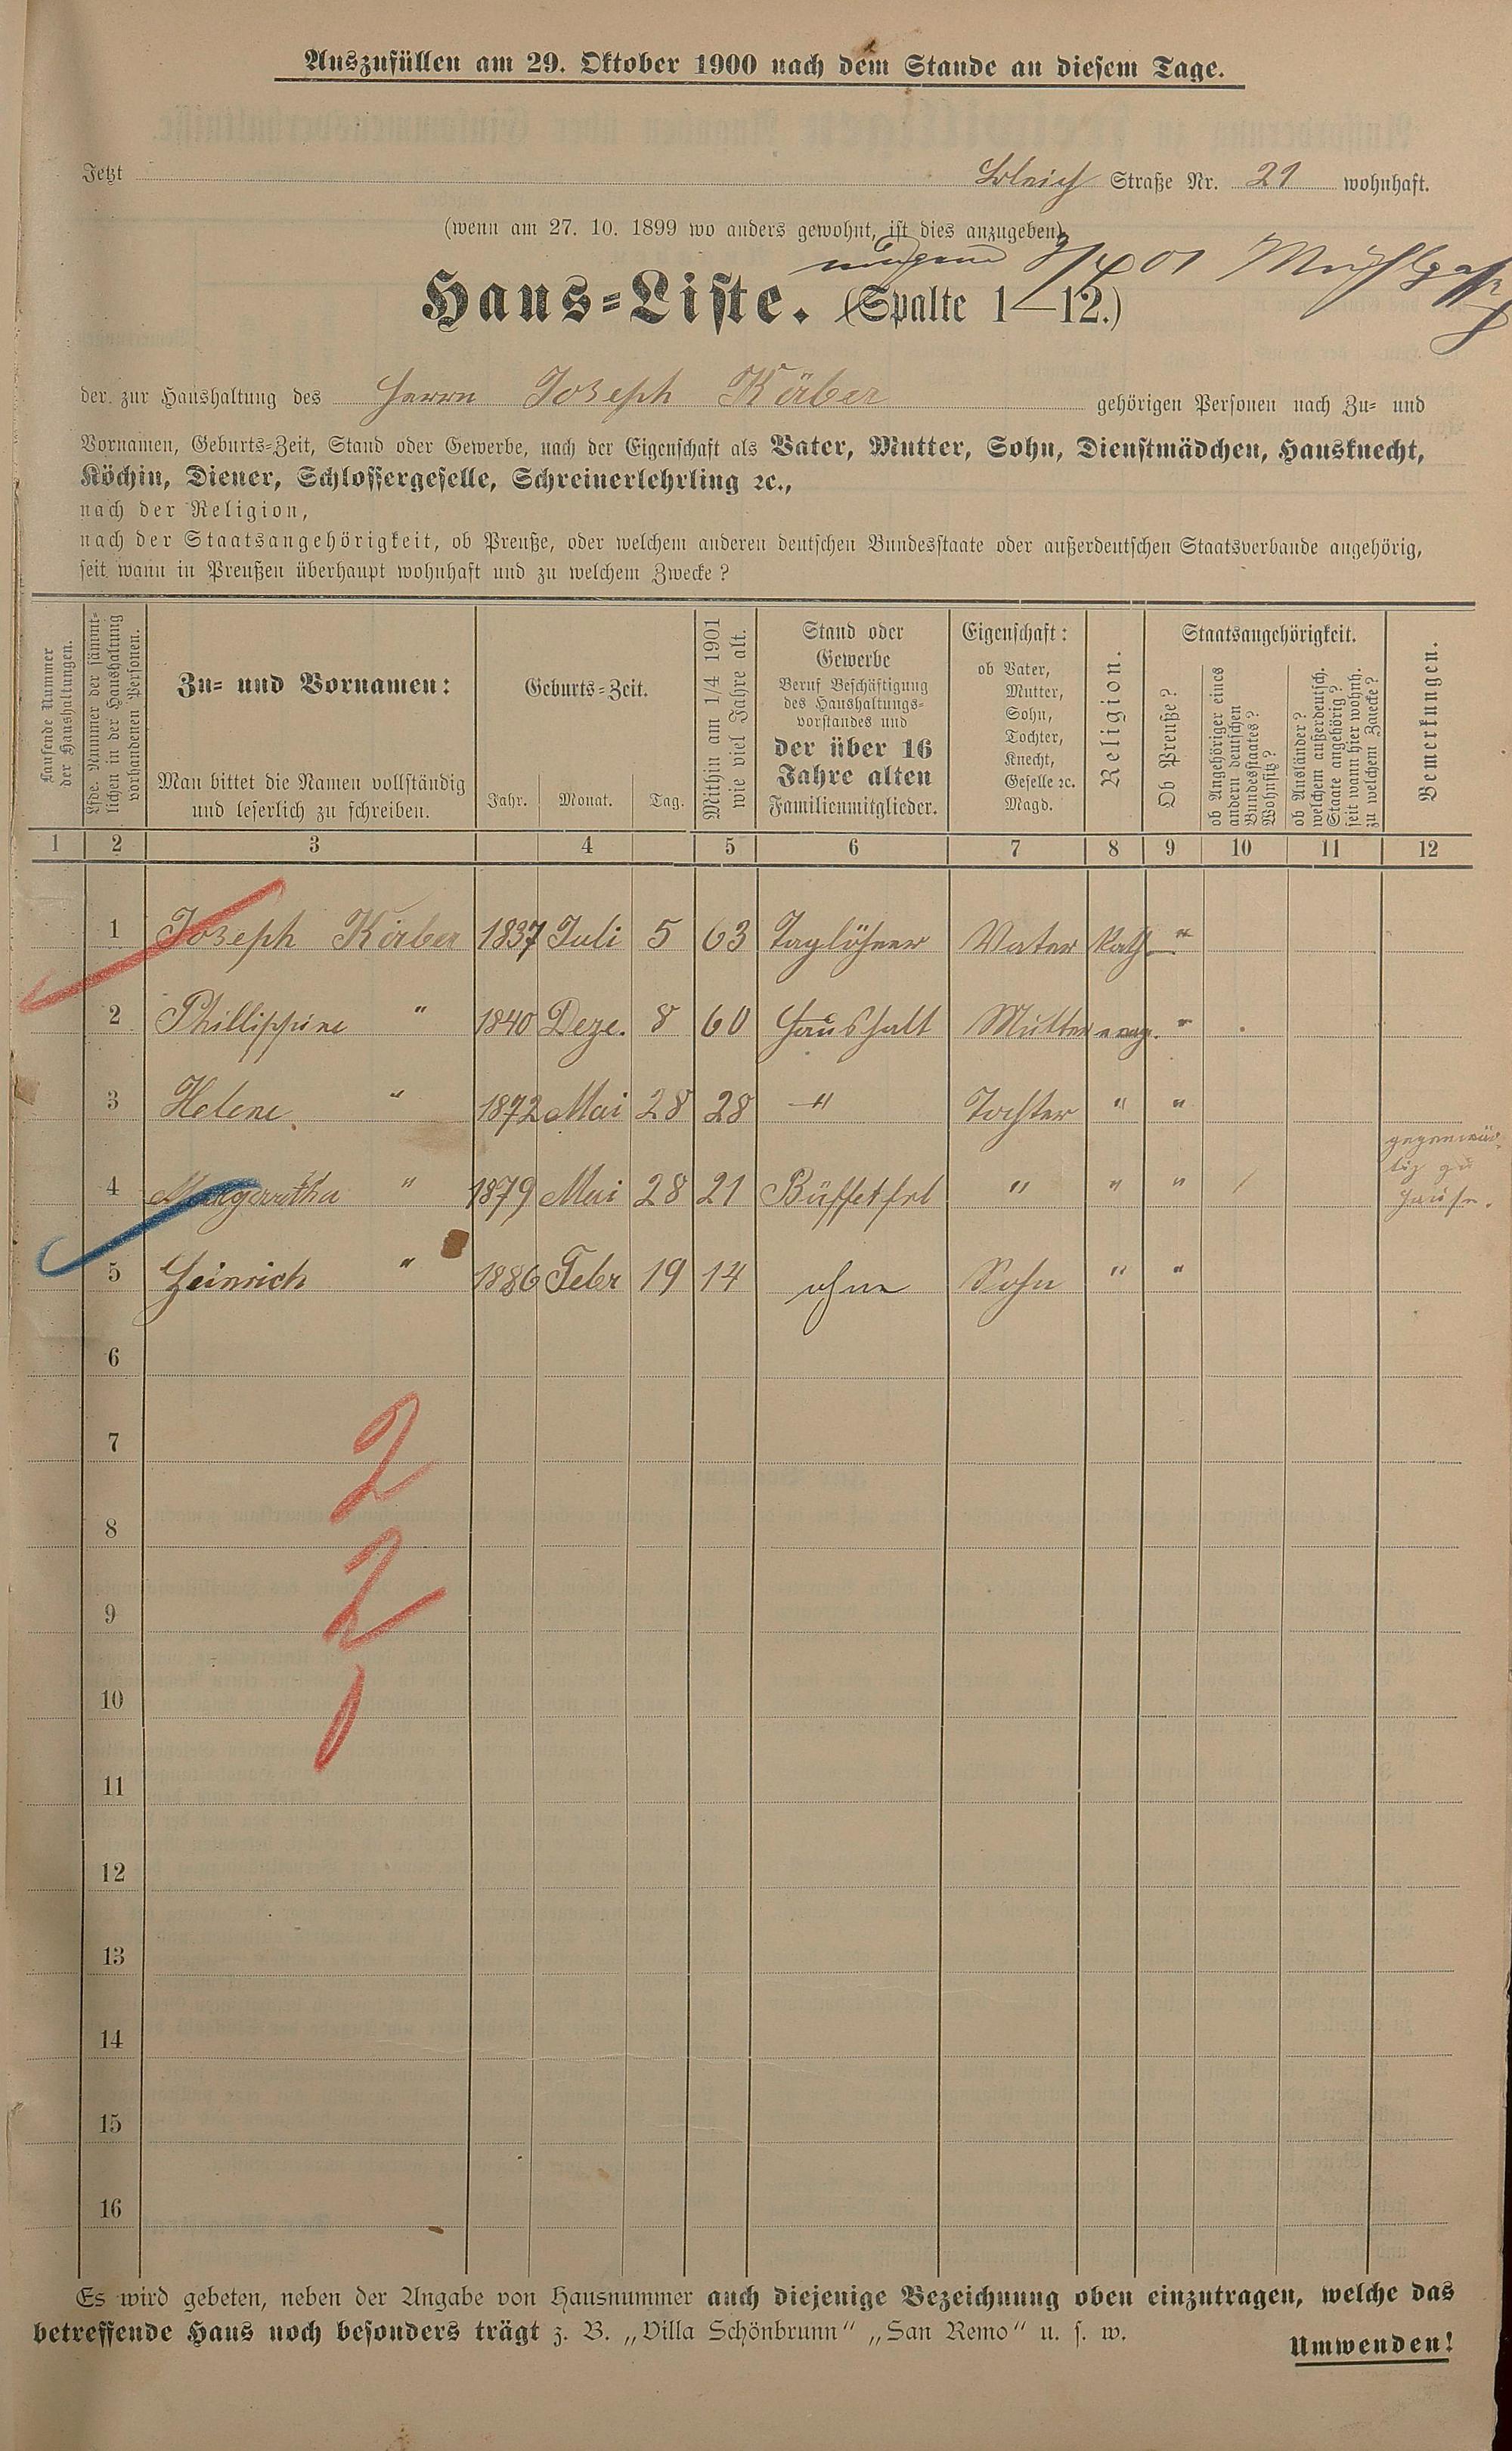 Auszufüllen am 29. Oktober 1900 nach dem Stande an diesem Tage.
Jetzt Bleich Straße Nr. 21 wohnhaft.
(wenn am 27. 10. 1899 wo anders gewohnt, ist dies anzugeben)
3/4 01
Haus-Liste. (Spalte 1—12.)
der zur Haushaltung des Herrn Joseph Körber gehörigen Personen nach Zu- und
Vornamen, Geburts-Zeit, Stand oder Gewerbe, nach der Eigenschaft als Vater, Mutter, Sohn, Dienstmädchen, Hausknecht,
Köchin, Diener, Schlossergeselle, Schreinerlehrling ꝛc.,
nach der Religion,
nach der Staatsangehörigkeit, ob Preuße, oder welchem anderen deutschen Bundesstaate oder außerdeutschen Staatsverbande angehörig,
seit wann in Preußen überhaupt wohnhaft und zu welchem Zwecke?
Laufende Nummer
der Haushaltungen.
Lfde. Nummer der sämmt-
lichen in der Haushaltung
vorhandenen Personen.
Zu- und Vornamen:
Man bittet die Namen vollständig
und leserlich zu schreiben.
Geburts-Zeit.
Jahr. Monat. Tag.
Mithin am 1/4 1901
wie viel Jahre alt.
Stand oder
Gewerbe
Beruf Beschäftigung
des Haushaltungs-
vorstandes und
der über 16
Jahre alten
Familienmitglieder.
Eigenschaft:
ob Vater,
Mutter,
Sohn,
Tochter,
Knecht,
Geselle ꝛc.
Magd.
Religion.
Staatsangehörigkeit.
Ob Preuße?
ob Angehöriger eines
andern deutschen
Bundesstaates?
Wohnsitz?
ob Ausländer?
welchem außerdeutsch.
Staate angehörig?
seit wann hier wohnh.
zu welchem Zwecke?
Bemerkungen.
1 2 3 4 5 6 7 8 9 10 11 12
1 Joseph Körber 1837 Juli 5 63 Taglöhner Vater Kath "
2 Phillippine " 1840 Deze. 8 60 Haushalt Mutter evag. "
3 Helene " 1872 Mai 28 28 " Tochter " "
4 Margaretha " 1879 Mai 28 21 Büffetfrl " " " gegenwär-
tig zu
Hause.
5 Heinrich " 1886 Feber 19 14 ohne Sohn " "
6
7
2
8
9
2
10
1
11
12
13
14
15
16
Es wird gebeten, neben der Angabe von Hausnummer auch diejenige Bezeichnung oben einzutragen, welche das
betreffende Haus noch besonders trägt z. B. „Villa Schönbrunn“ „San Remo“ u. s. w.
Umwenden!